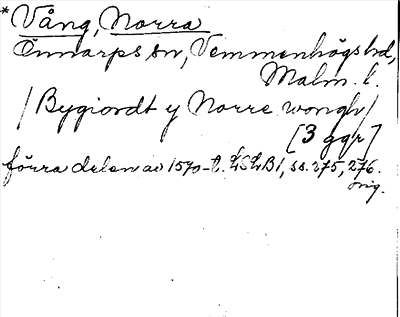 * Vång, Norra
Önnarps sn, Vemmenhögs hd,
Malm. l.
/Bygiordt y Norre wongh/
[3 ggr]
förra delen av 1570-t. LSLB1, ss. 275, 276.
orig.